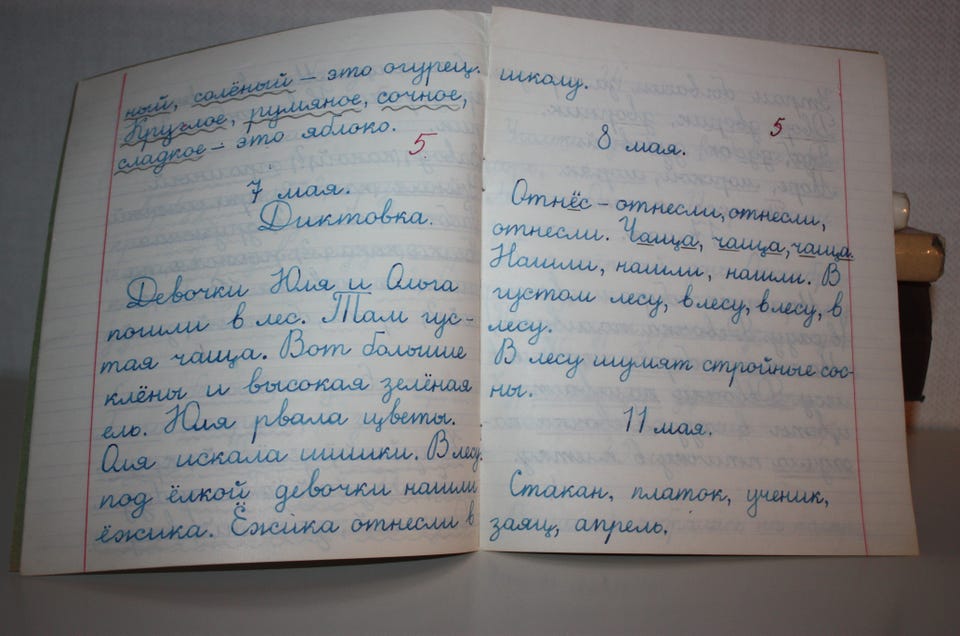 ный, солёный – это огурец.
Круглое, румяное, сочное,
сладкое – это яблоко.
5
7 мая.
Диктовка.
Девочки Юля и Ольга
пошли в лес. Там гус-
тая чаща. Вот большие
клёны и высокая зелёная
ель. Юля рвала цветы.
Оля искала шишки. В лесу
под ёлкой девочки нашли
ёжика. Ёжика отнесли в
школу.
5
8 мая.
Отнёс – отнесли, отнесли,
отнесли. Чаща, чаща, чаща.
Нашли, нашли, нашли. В
густом лесу, в лесу, в лесу, в
лесу.
В лесу шумят стройные сос-
ны.
11 мая.
Стакан, платок, ученик,
заяц, апрель.